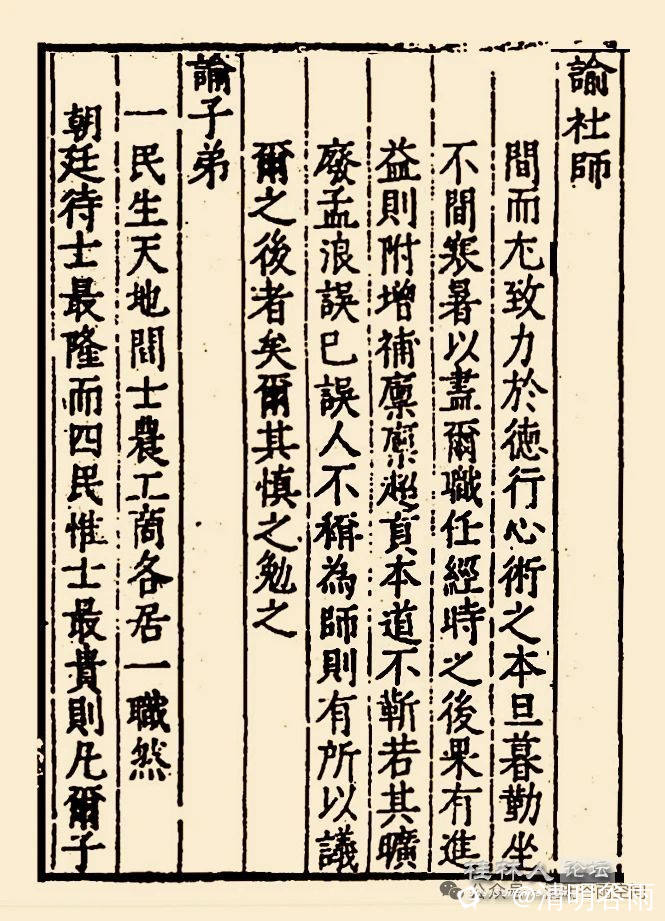 諭社師
間而尤致力於德行心術之本旦暮勤坐
不間寒暑以盡爾職任經時之後果有進
益則附增補廩廩起貢本道不靳若其曠
廢孟浪誤已誤人不稱為師則有所以議
爾之後者矣爾其慎之勉之
諭子弟
一民生天地間士農工商各居一職然
朝廷待士最隆而四民惟士最貴則凡爾子
桂林人论坛
@清明谷雨